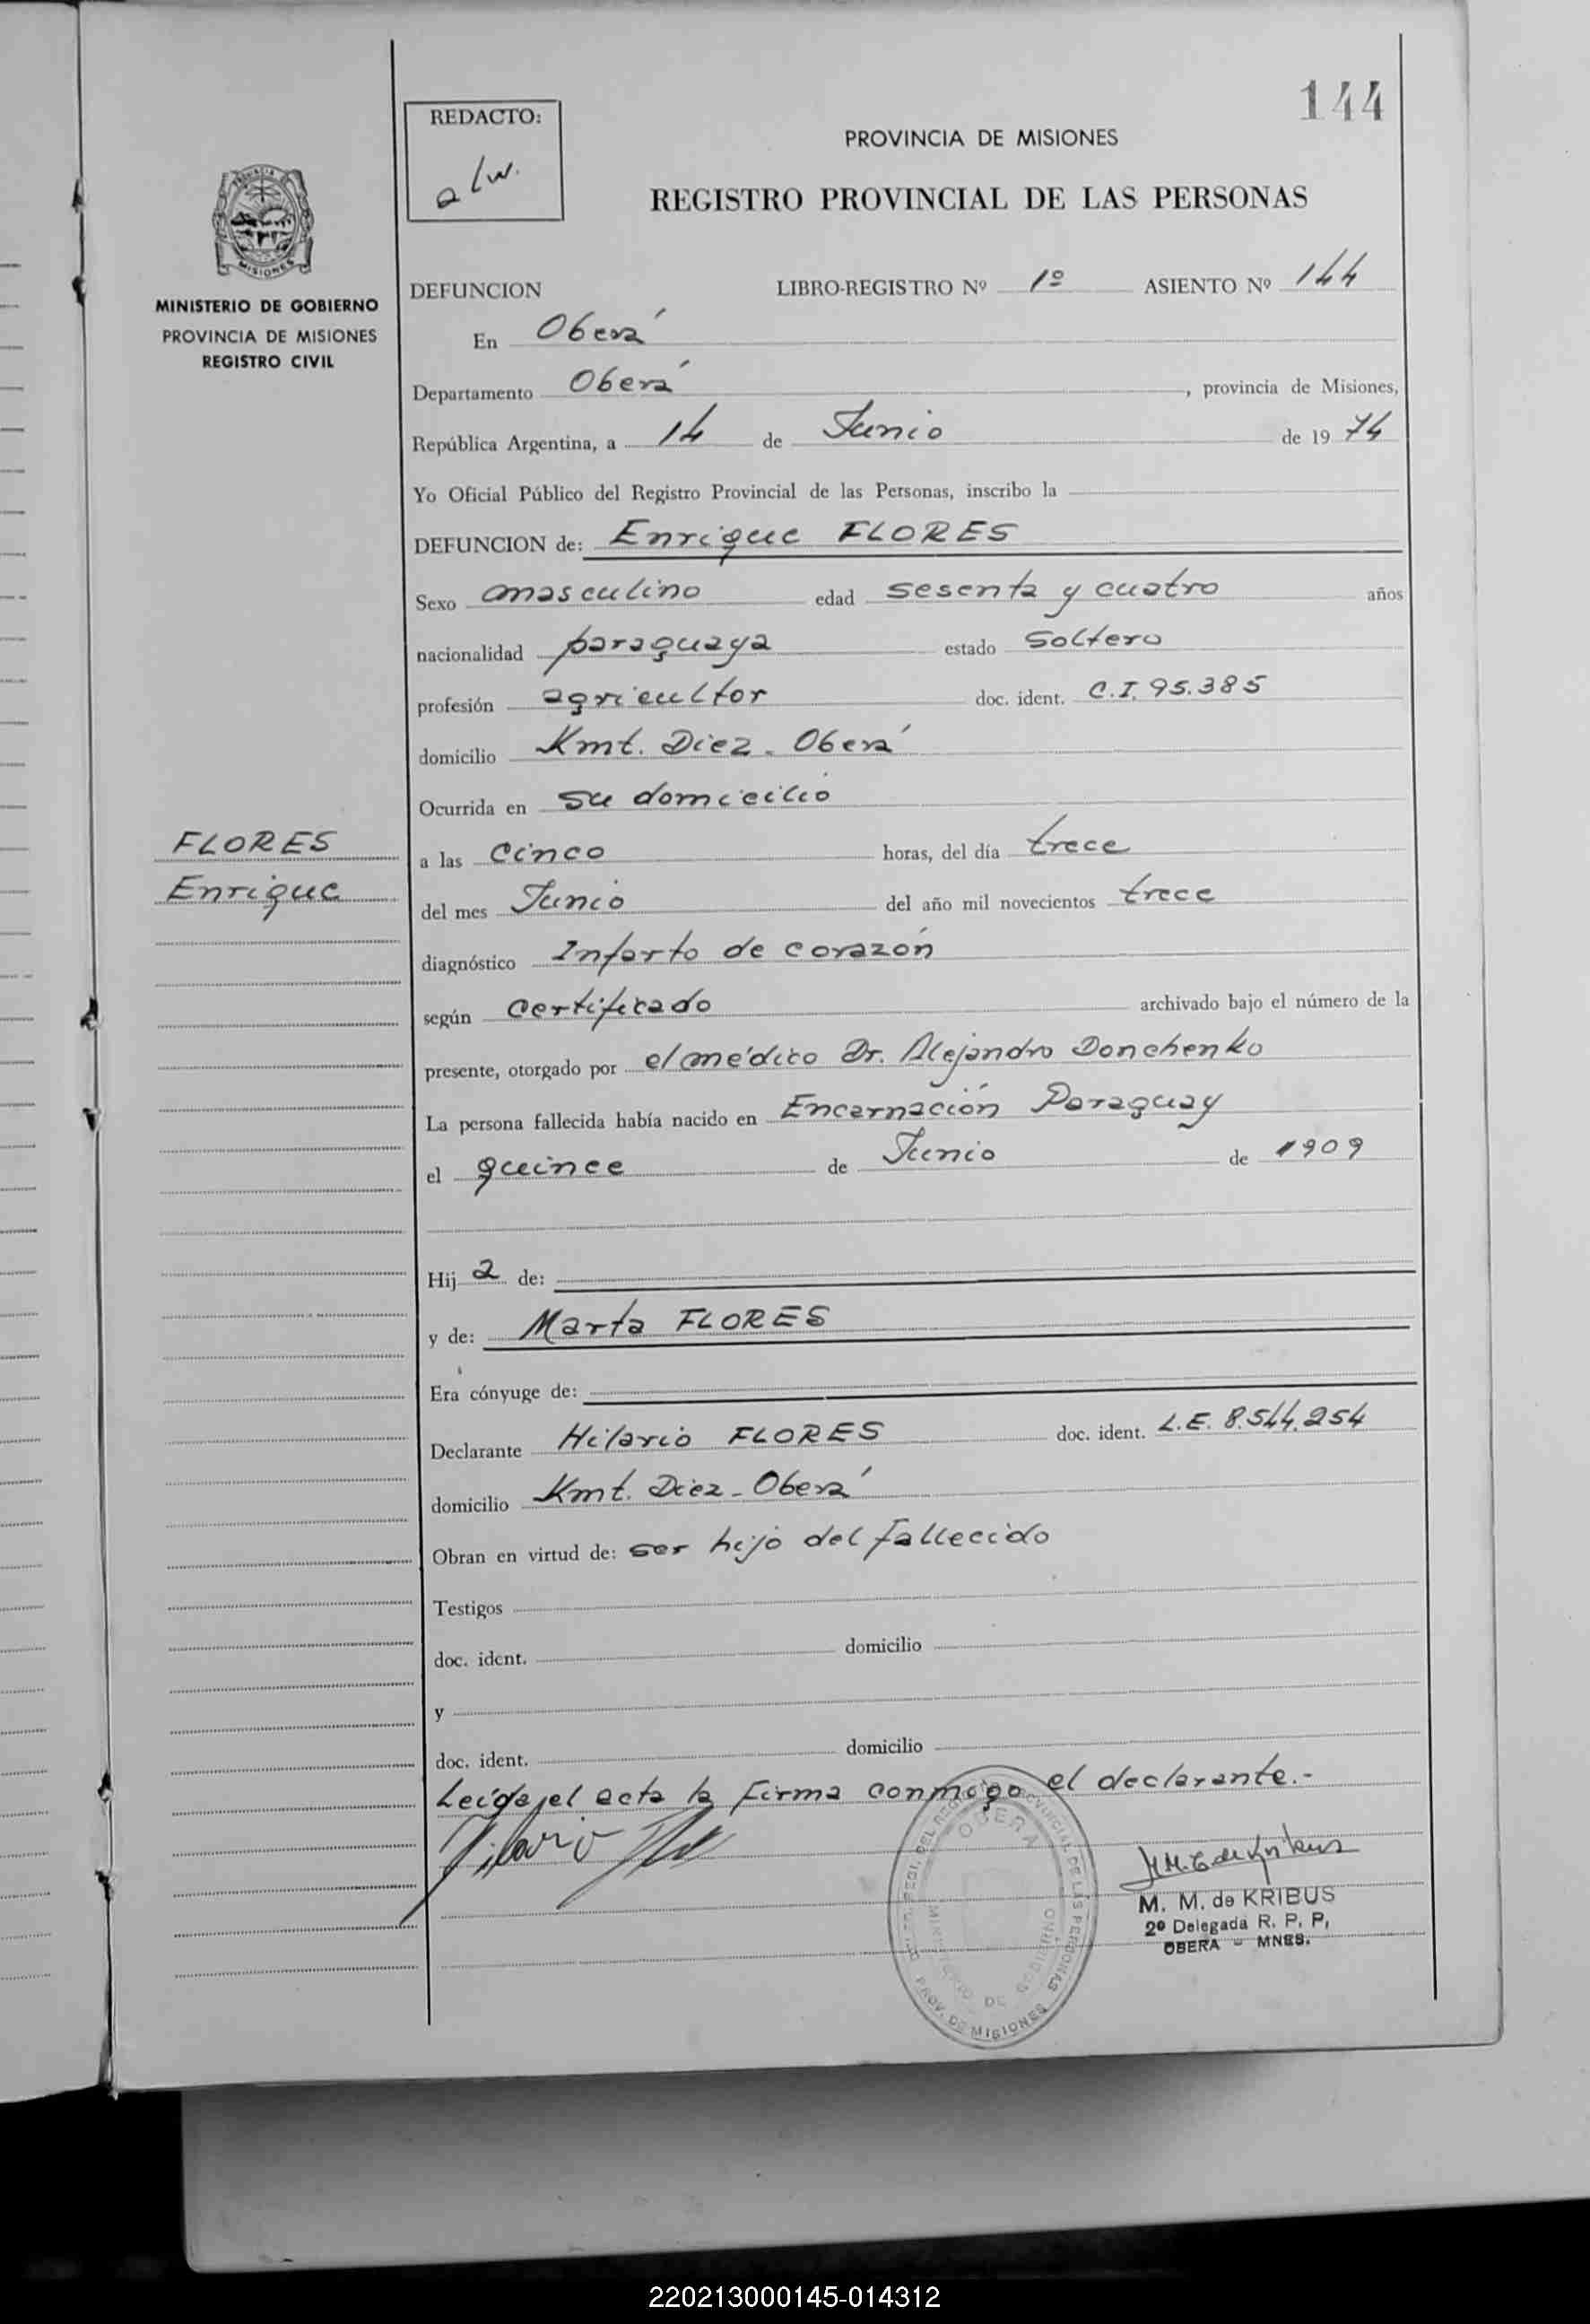 144
REDACTO:
alw.
PROVINCIA DE MISIONES
REGISTRO PROVINCIAL DE LAS PERSONAS
MISIONES
MINISTERIO DE GOBIERNO
PROVINCIA DE MISIONES
REGISTRO CIVIL
DEFUNCION LIBRO-REGISTRO Nº 1º ASIENTO Nº 144
En Oberá
Departamento Oberá, provincia de Misiones,
República Argentina, a 14 de Junio de 1974
Yo Oficial Público del Registro Provincial de las Personas, inscribo la
DEFUNCION de: Enrique FLORES
Sexo masculino edad sesenta y cuatro años
nacionalidad paraguaya estado soltero
profesión agricultor doc. ident. C.I. 95.385
domicilio Kmt. Diez - Oberá
Ocurrida en su domicilio
FLORES
Enrique
a las cinco horas, del día trece
del mes Junio del año mil novecientos trece
diagnóstico Infarto de corazón
según certificado archivado bajo el número de la
presente, otorgado por el médico Dr. Alejandro Donchenko
La persona fallecida había nacido en Encarnación Paraguay
el quince de Junio de 1909
Hij a de:
y de: Marta FLORES
Era cónyuge de:
Declarante Hilario FLORES doc. ident. L.E. 8.544.254
domicilio Kmt. Diez - Oberá
Obran en virtud de: ser hijo del fallecido
Testigos
doc. ident. domicilio
y
doc. ident. domicilio
Leída el acta la firma conmigo el declarante.-
Hilario
OBERA
PROVINCIAL DE LAS PERSONAS
MINISTERIO DE GOBIERNO
PROV. DE MISIONES
M. M. de KRIBUS
2º Delegada R. P. P,
OBERA - MNES.
220213000145-014312